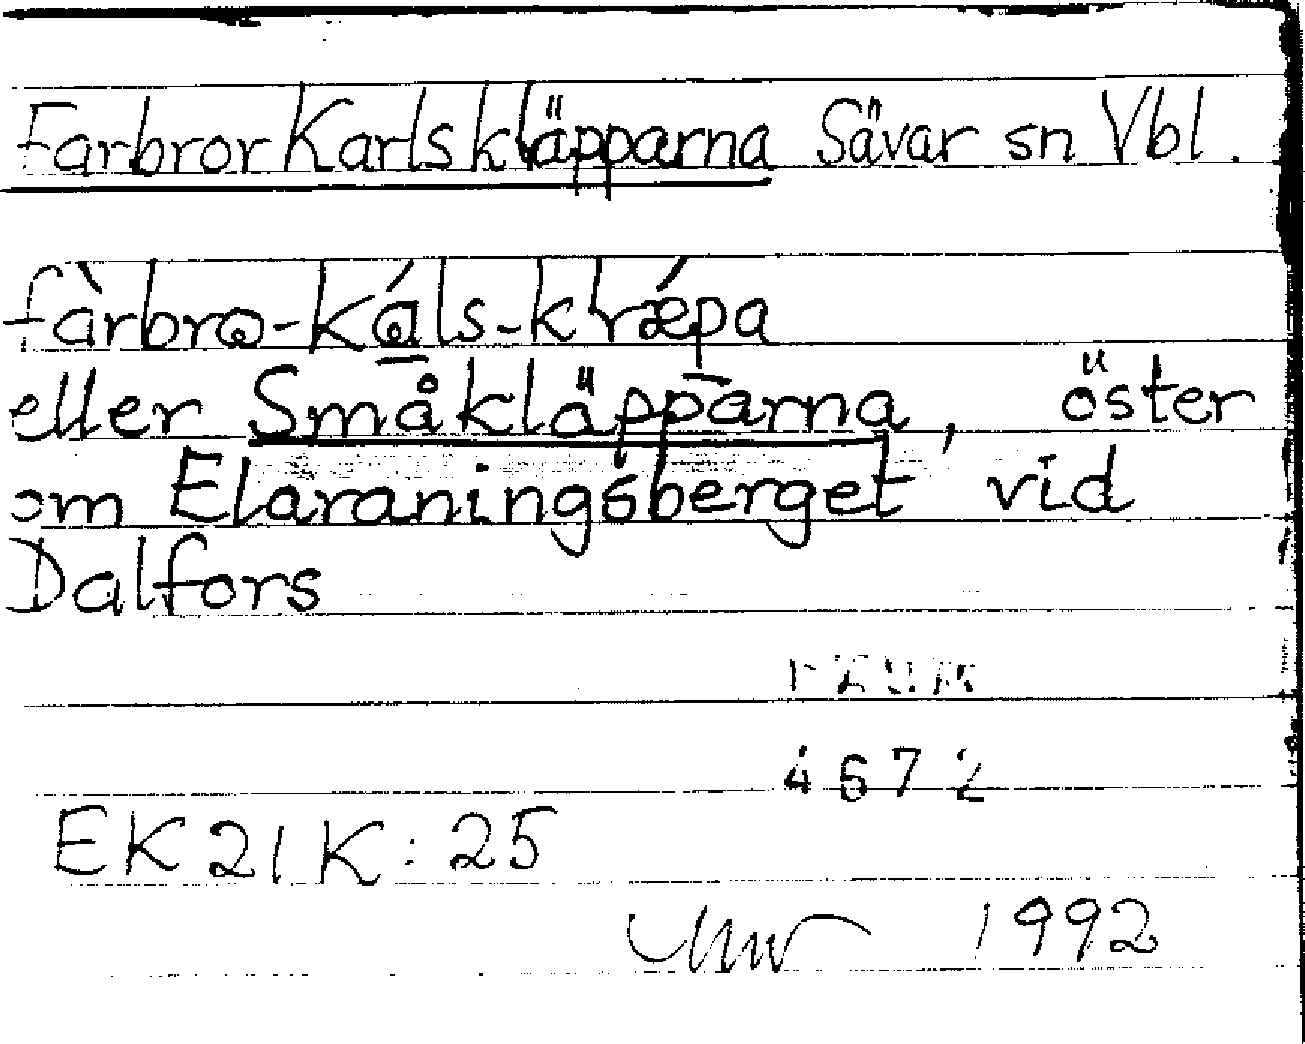 Farbror Karlskläpparna Sävar sn Vbl.
fàrbrɷ-kɷ́ls-klǽpa
eller Småkläpparna, öster
om Elaraningsberget vid
Dalfors
4672
EK 21 K: 25
1992